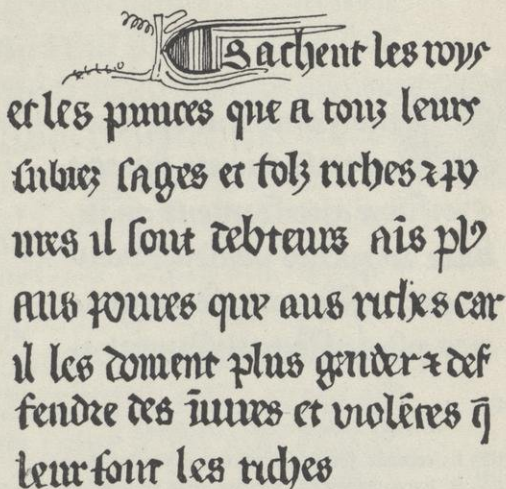 Sachent les roys
et les princes que a touz leurs
subiez sages et folz riches ⁊ po
ures il sont debteurs mais plꝰ
aus poures que aus riches car
il les doiuent plus garder ⁊ def
fendre des iniures et violēces q̄
leur font les riches